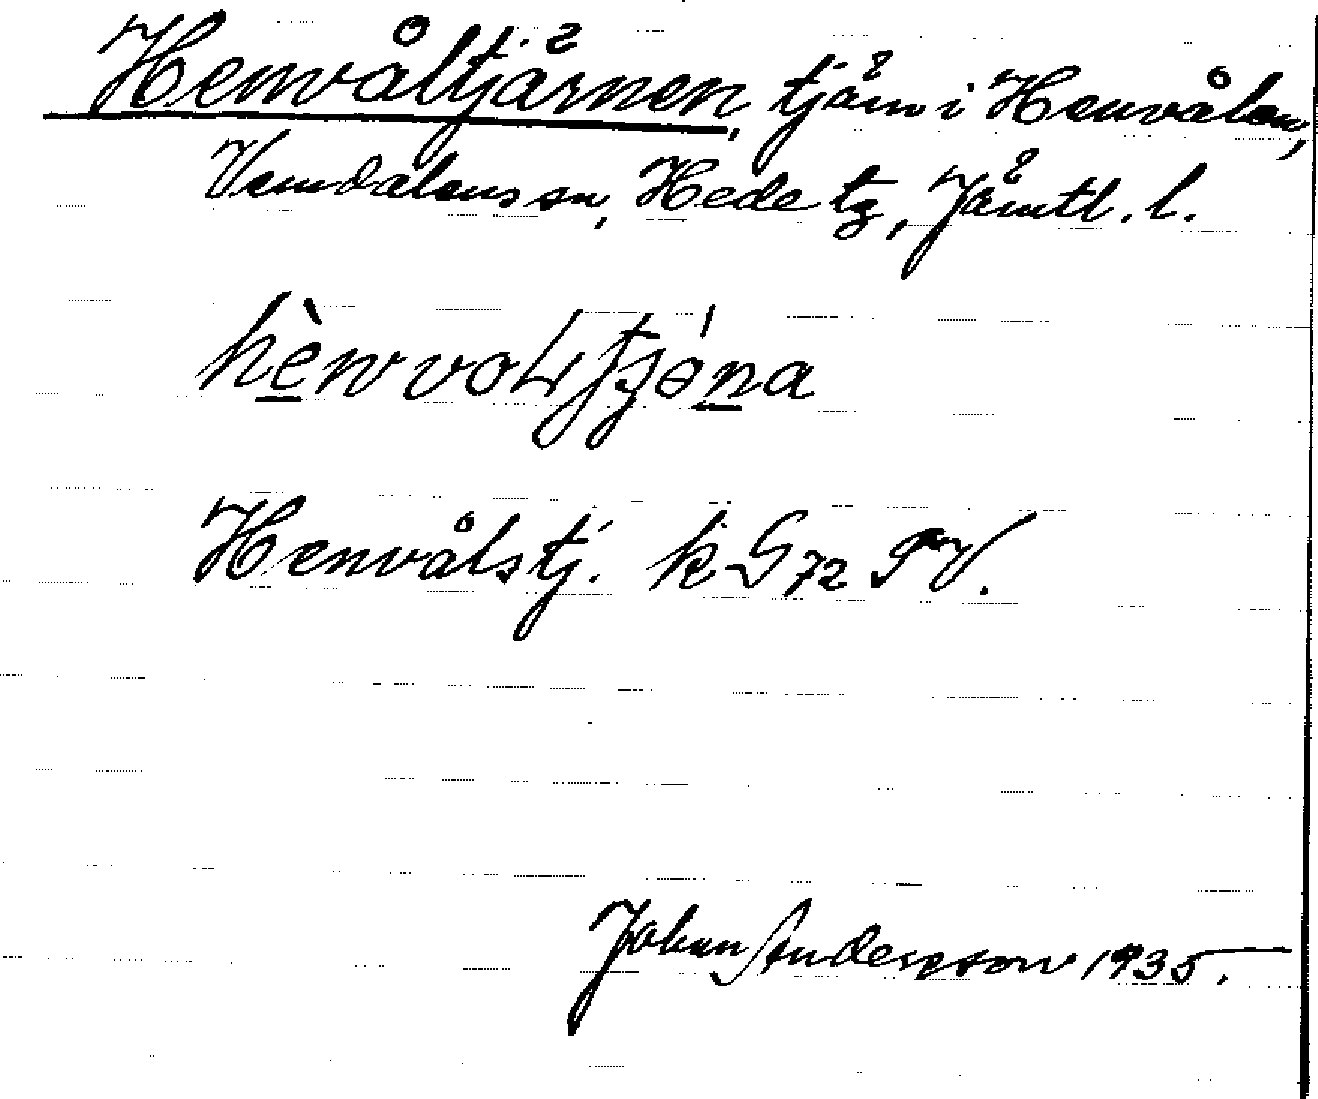 Henvåltjärnen, tjärn i Henvålen,
Vemdalens sn, Hede tg, Jämtl. l.
hènvoLtjǿna
Henvålstj. k G 72 SV.
Johan Andersson 1935.